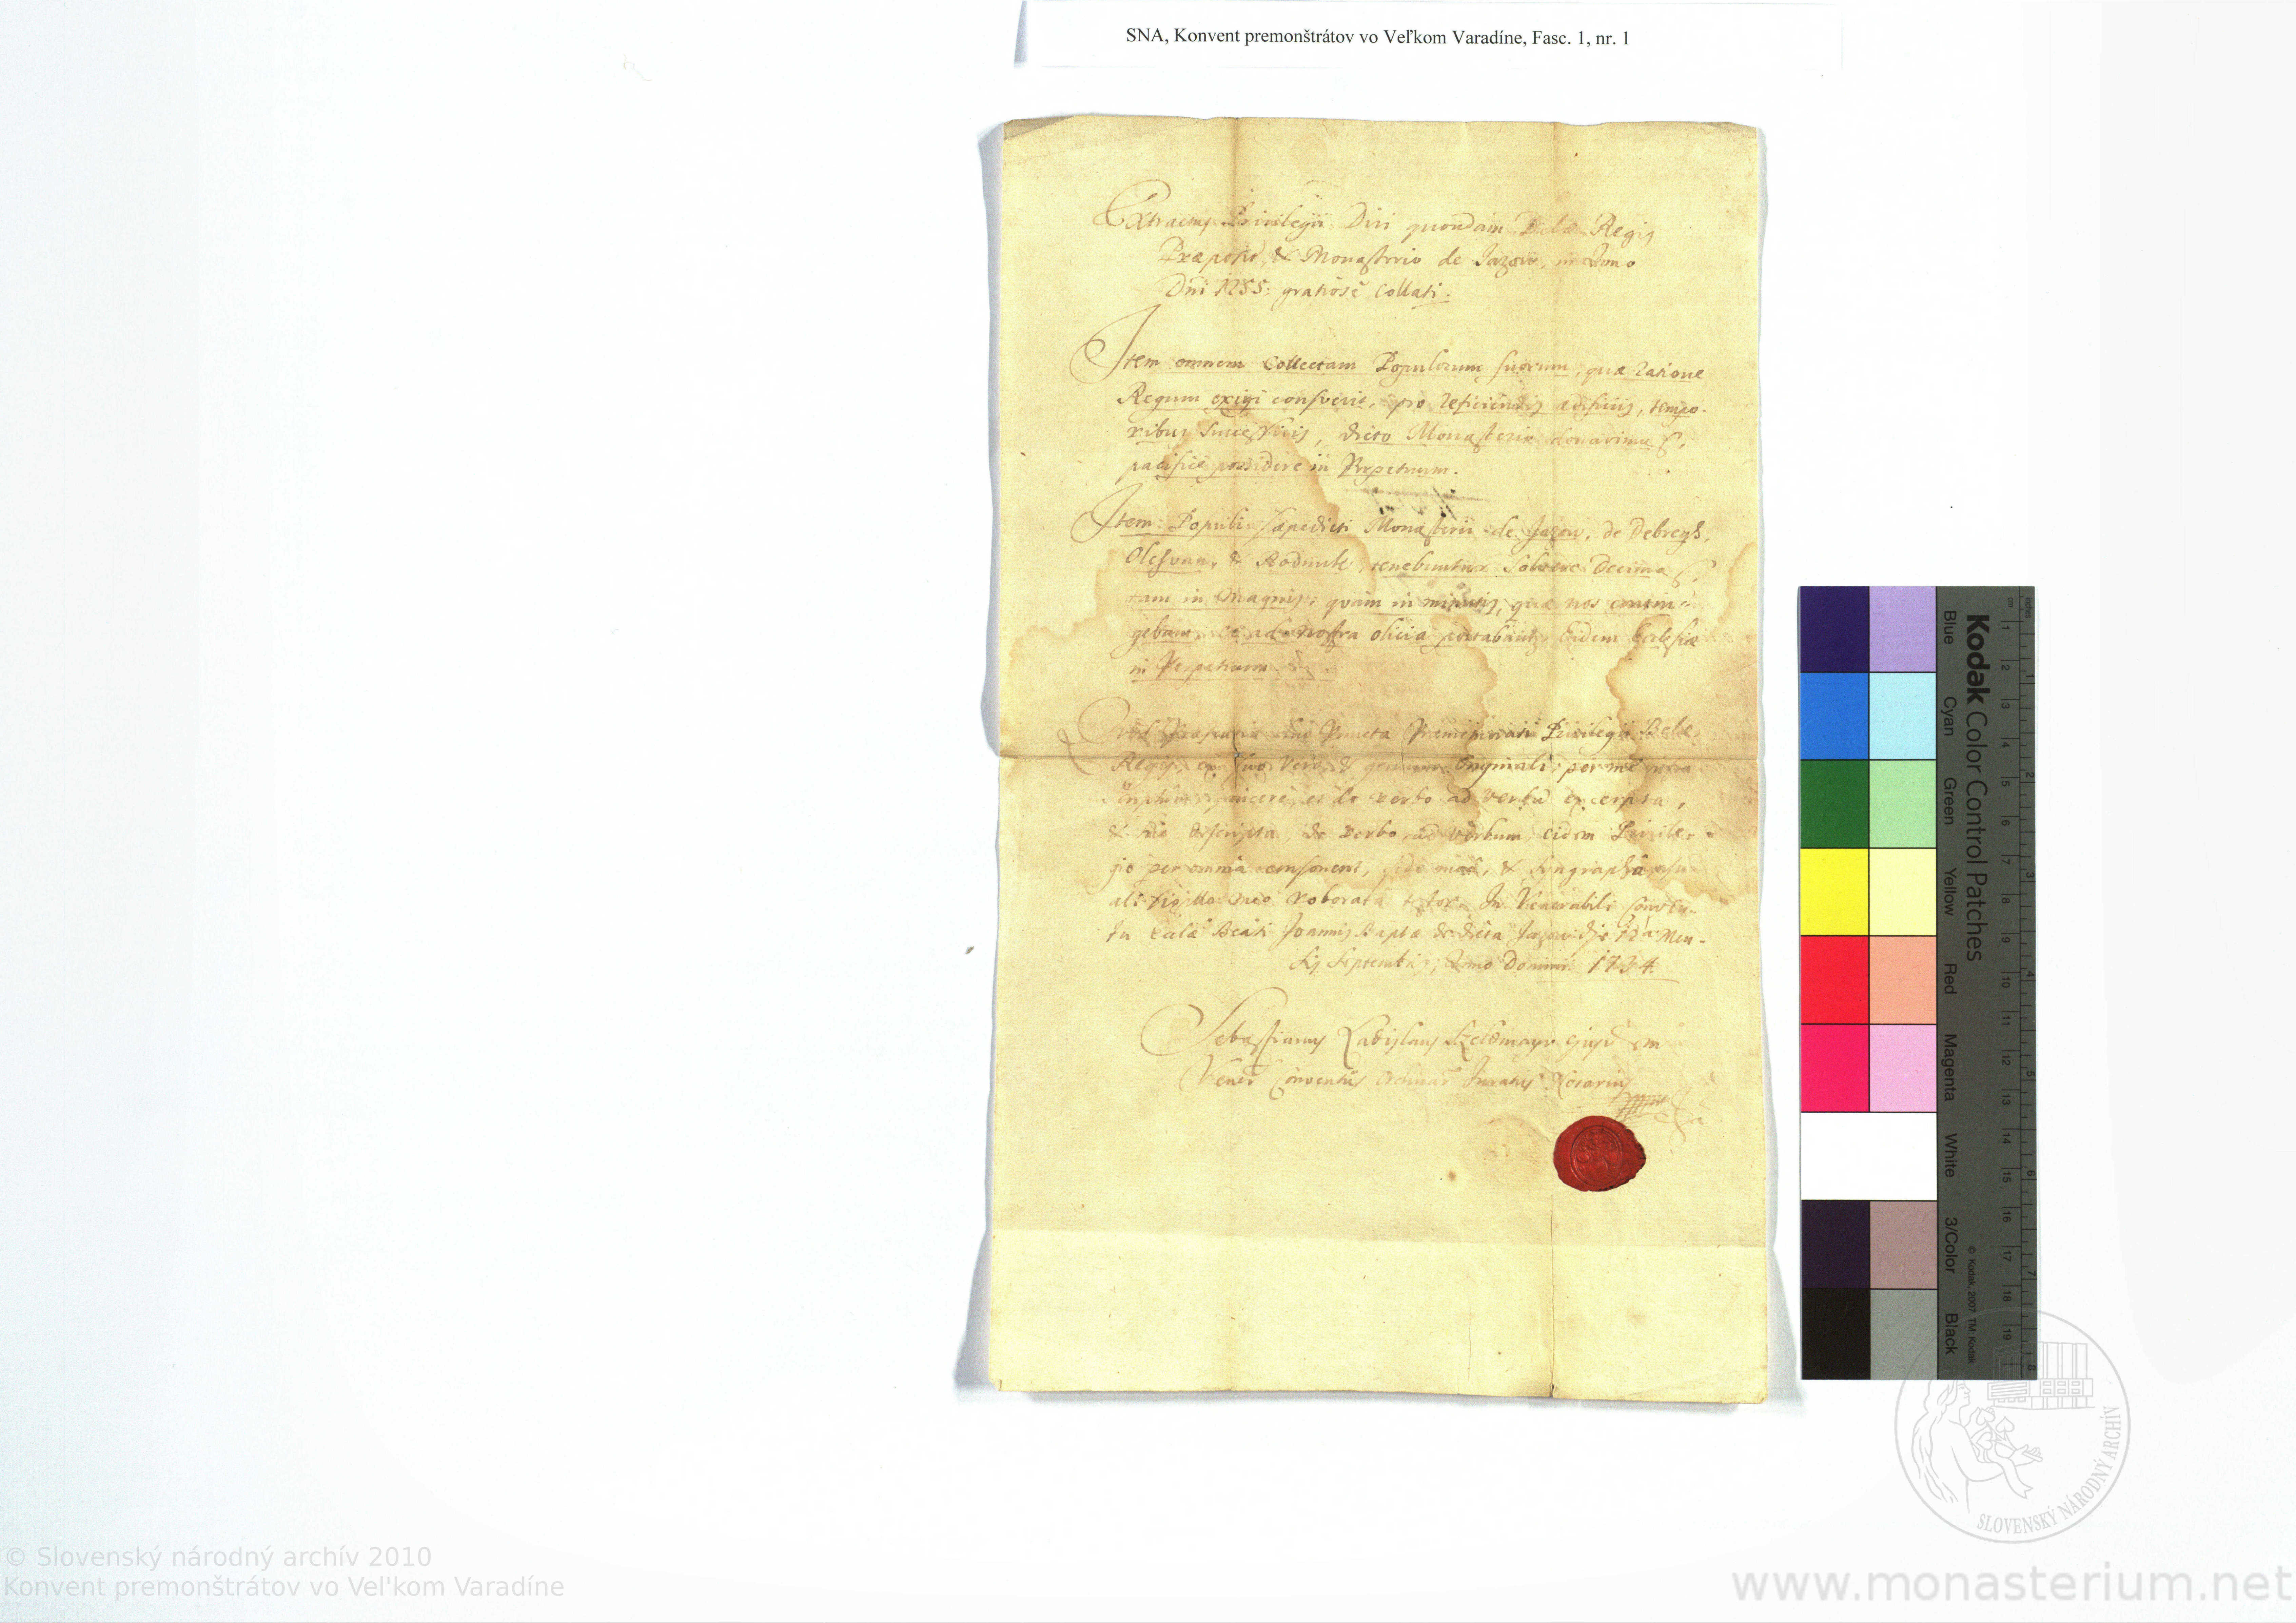 SNA, Konvent premonštrátov vo Veľkom Varadíne, Fasc. 1, nr. 1
Extractus Privilegii Divi quondam Belae Regis
Praeposito, & Monasterio de Jazow, in Anno
Dñi 1255. gratiosè Collati.
Item omnem Collectam Populorum suorum, quae ratione
Regum exigi consvevit, pro reficiendis aedificiis, tempo-
ribus successivis, dicto Monasterio donavimus,
pacificè possidere in Perpetuum.
Item: Populi saepedicti Monasterii de Jazow, de Debregh,
Olchvan, & Rodnuk, tenebuntur Solvere Decimas,
tam in magnis, quàm in minutis, quae nos contin-
gebant et ad nostra portabunt eidem Ecclesiae
in Perpetuum.
Quod praesentia duo Puncta Privilegii Belae
Regis, ex suo vero, & genuino Originali, per me
sincerè, et de verbo ad verbum excerpta,
& descripta, de verbo ad verbum, eidem Privile-
gio per omnia consonent, fide mea, & Syngrapha
ali Sigillo meo roborata testor. In Venerabili Conven-
tu Beati Joannis Bapta de dicta Jazow die 12a Men-
sis Septembris, Anno Domini 1734.
Sebastianus Ladislaus ejusdem
Vener Conventûs Juratus Notarius
Kodak Color Control Patches
Blue
Cyan
Green
Yellow
Red
Magenta
White
3/Color
Black
© Kodak, 2007 TM: Kodak
cm 1 2 3 4 5 6 7 8 9 10 11 12 13 14 15 16 17 18 19
inches 1 2 3 4 5 6 7 8
SLOVENSKÝ NÁRODNÝ ARCHÍV
© Slovenský národný archív 2010
Konvent premonštrátov vo Vel'kom Varadíne
www.monasterium.net